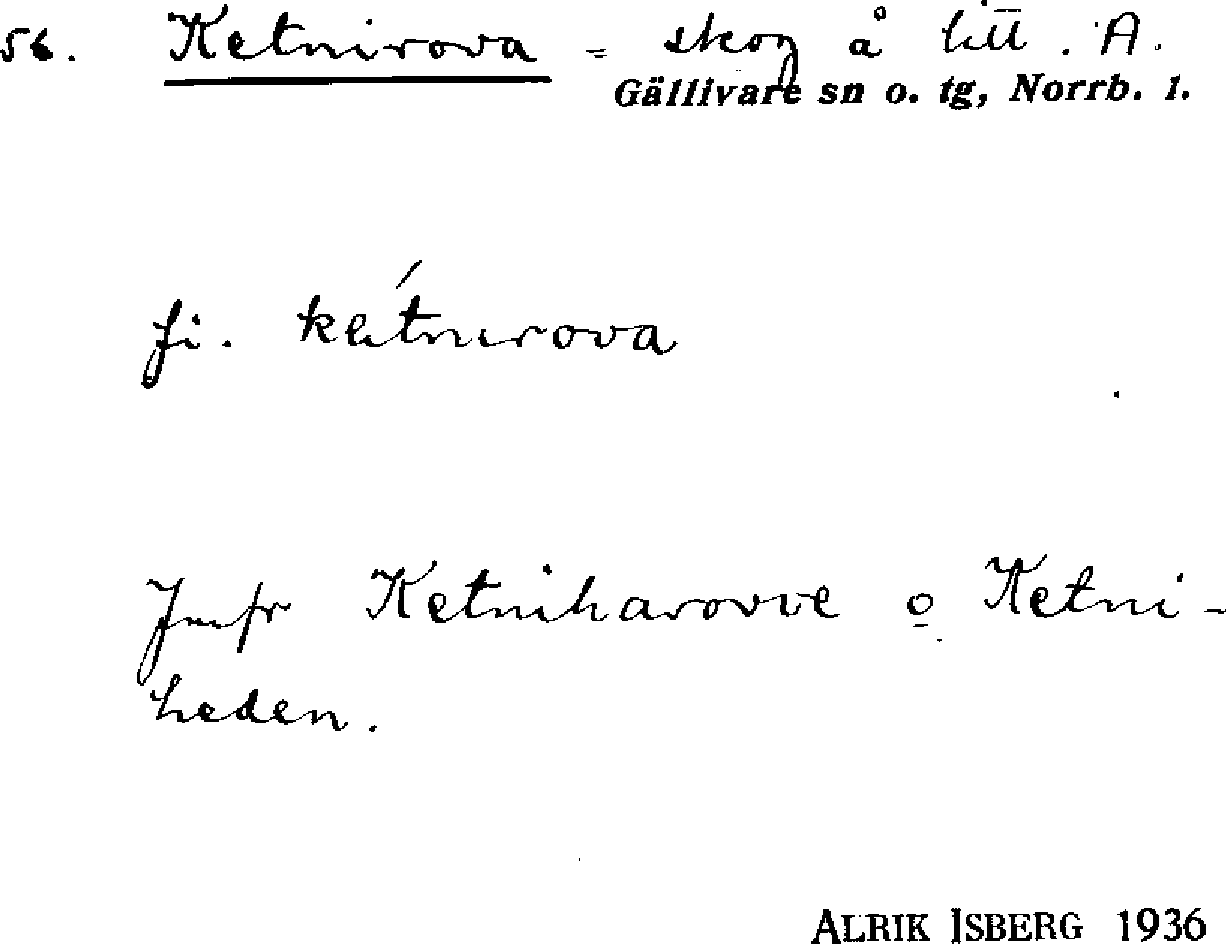 56. Ketnirova = skog å litt. A.
Gällivare sn o. tg, Norrb. l.
fi. kétnirova
Jmfr Ketniharovve o Ketni-
heden.
ALRIK ISBERG 1936